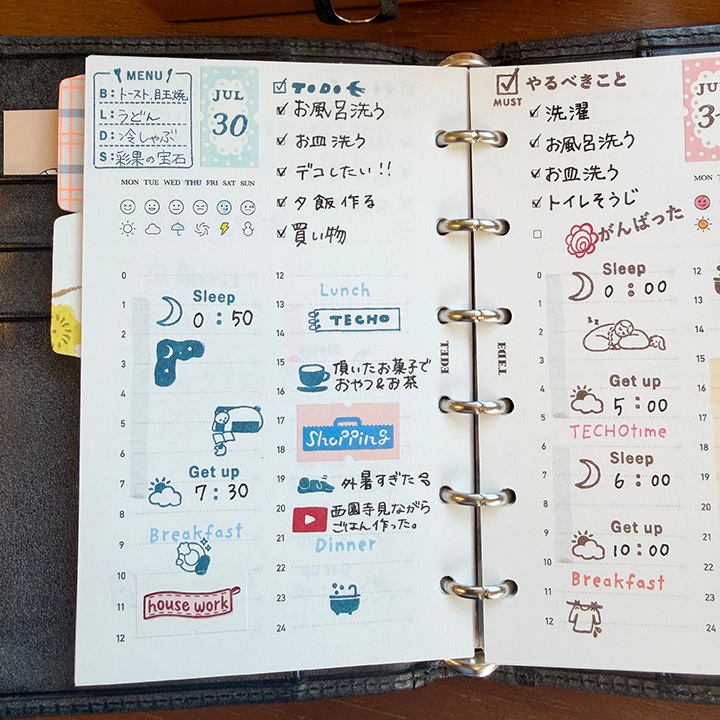 MENU
B:トースト,目玉焼
L:うどん
D:冷しゃぶ
S:彩果の宝石
JUL
30
MON TUE WED THU FRI SAT SUN
TODO
お風呂洗う
お皿洗う
デコしたい!!
夕飯作る
買い物
0
1
2
3
4
5
6
7
8
9
10
11
12
Sleep
0:50
Get up
7:30
Breakfast
house work
12
13
14
15
16
17
18
19
20
21
22
23
24
Lunch
TECHO
頂いたお菓子で
おやつ&お茶
Shopping
外暑すぎた
西園寺見ながら
ごはん作った。
Dinner
TEDE
TEDE
MUST
やるべきこと
洗濯
お風呂洗う
お皿洗う
トイレそうじ
がんばった
JUL
3
MO
0
1
2
3
4
5
6
7
8
9
10
11
12
Sleep
0:00
Get up
5:00
TECHOtime
Sleep
6:00
Get up
10:00
Breakfast
12
13
14
15
16
17
18
19
20
21
22
23
24